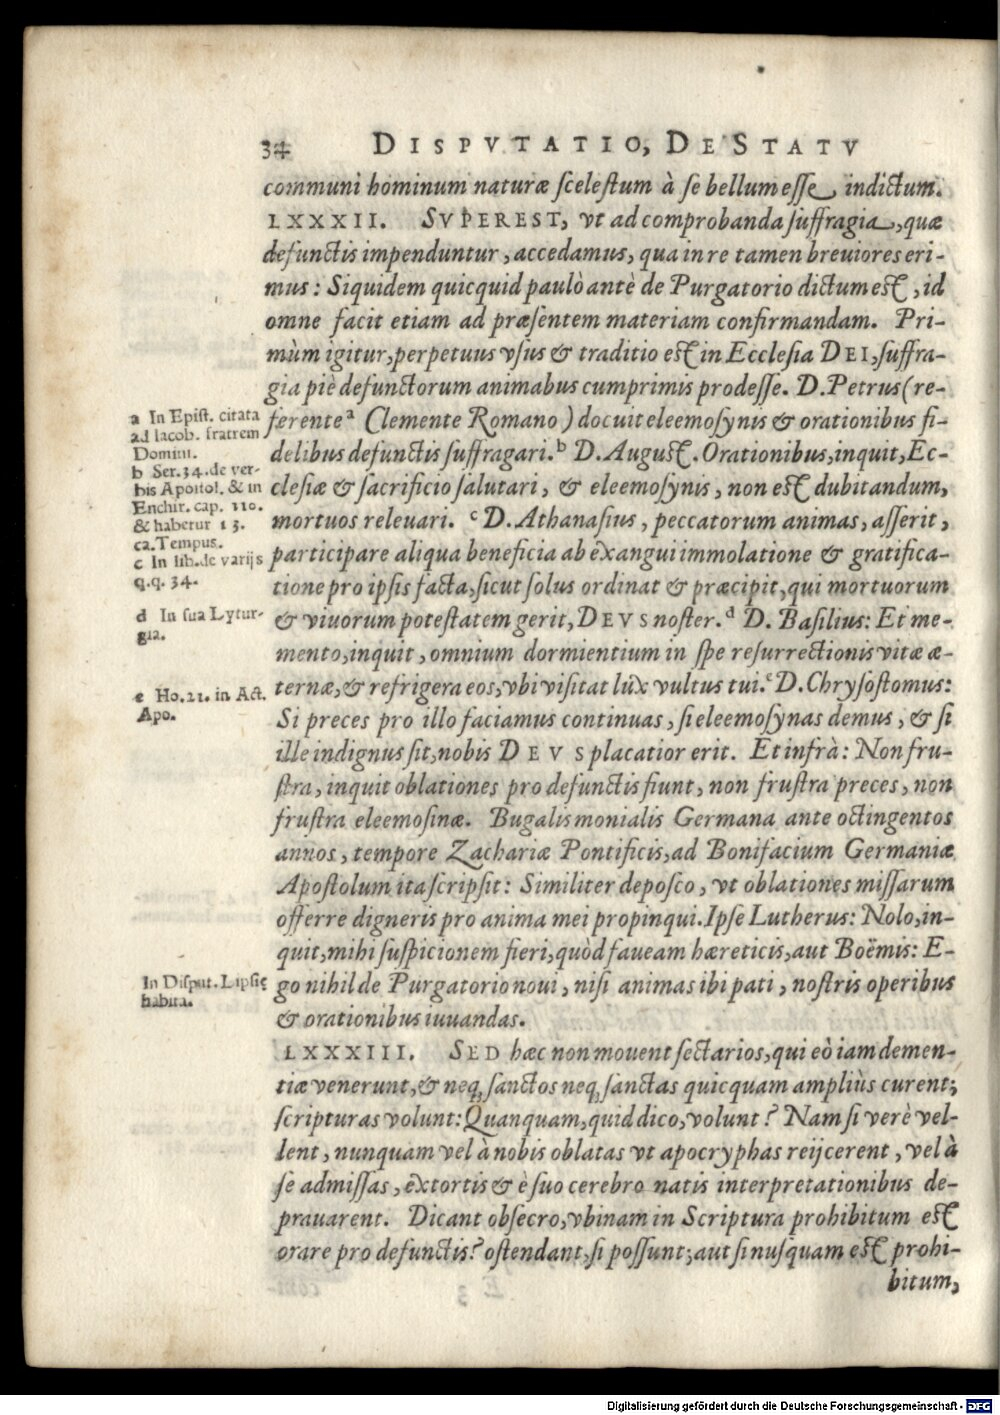 34 DISPVTATIO, DE STATV
communi hominum naturæ scelestum à se bellum esse indictum.
LXXXII. SVPEREST, vt ad comprobanda suffragia, quæ
defunctis impenduntur, accedamus, qua in re tamen breuiores eri-
mus: Siquidem quicquid paulò antè de Purgatorio dictum est, id
omne facit etiam ad præsentem materiam confirmandam. Pri-
mùm igitur, perpetuus vsus & traditio est in Ecclesia DEI, suffra-
gia piè defunctorum animabus cumprimis prodesse. D. Petrus (re-
ferente a Clemente Romano) docuit eleemosynis & orationibus fi-
delibus defunctis suffragari. b D. August. Orationibus, inquit, Ec-
clesiæ & sacrificio salutari, & eleemosynis, non est dubitandum,
mortuos releuari. c D. Athanasius, peccatorum animas, asserit,
participare aliqua beneficia ab exangui immolatione & gratifica-
tione pro ipsis facta, sicut solus ordinat & præcipit, qui mortuorum
& viuorum potestatem gerit, DEVS noster. d D. Basilius: Et me-
mento, inquit, omnium dormientium in spe resurrectionis vitæ æ-
ternæ, & refrigera eos, vbi visitat lux vultus tui. e D. Chrysostomus:
Si preces pro illo faciamus continuas, si eleemosynas demus, & si
ille indignus sit, nobis DEVS placatior erit. Et infrà: Non fru-
stra, inquit oblationes pro defunctis fiunt, non frustra preces, non
frustra eleemosinæ. Bugalis monialis Germana ante octingentos
annos, tempore Zachariæ Pontificis, ad Bonifacium Germaniæ
Apostolum ita scripsit: Similiter deposco, vt oblationes missarum
offerre digneris pro anima mei propinqui. Ipse Lutherus: Nolo, in-
quit, mihi suspicionem fieri, quòd faueam hæreticis, aut Boëmis: E-
go nihil de Purgatorio noui, nisi animas ibi pati, nostris operibus
& orationibus iuuandas.
LXXXIII. SED hæc non mouent sectarios, qui eò iam demen-
tiæ venerunt, & neq; sanctos neq; sanctas quicquam ampliùs curent;
scripturas volunt: Quanquam, quid dico, volunt? Nam si verè vel-
lent, nunquam vel à nobis oblatas vt apocryphas reijcerent, vel à
se admissas, extortis & è suo cerebro natis interpretationibus de-
prauarent. Dicant obsecro, vbinam in Scriptura prohibitum est
orare pro defunctis? ostendant, si possunt; aut si nusquam est prohi-
bitum,
a In Epist. citata
ad Iacob. fratrem
Domini.
b Ser. 34. de ver-
bis Apostol. & in
Enchir. cap. 110.
& habetur 13.
ca. Tempus.
c In lib. de varijs
q. q. 34.
d In sua Lytur-
gia.
e Ho. 21. in Act.
Apo.
In Disput. Lipsię
habita.
Digitalisierung gefördert durch die Deutsche Forschungsgemeinschaft - DFG